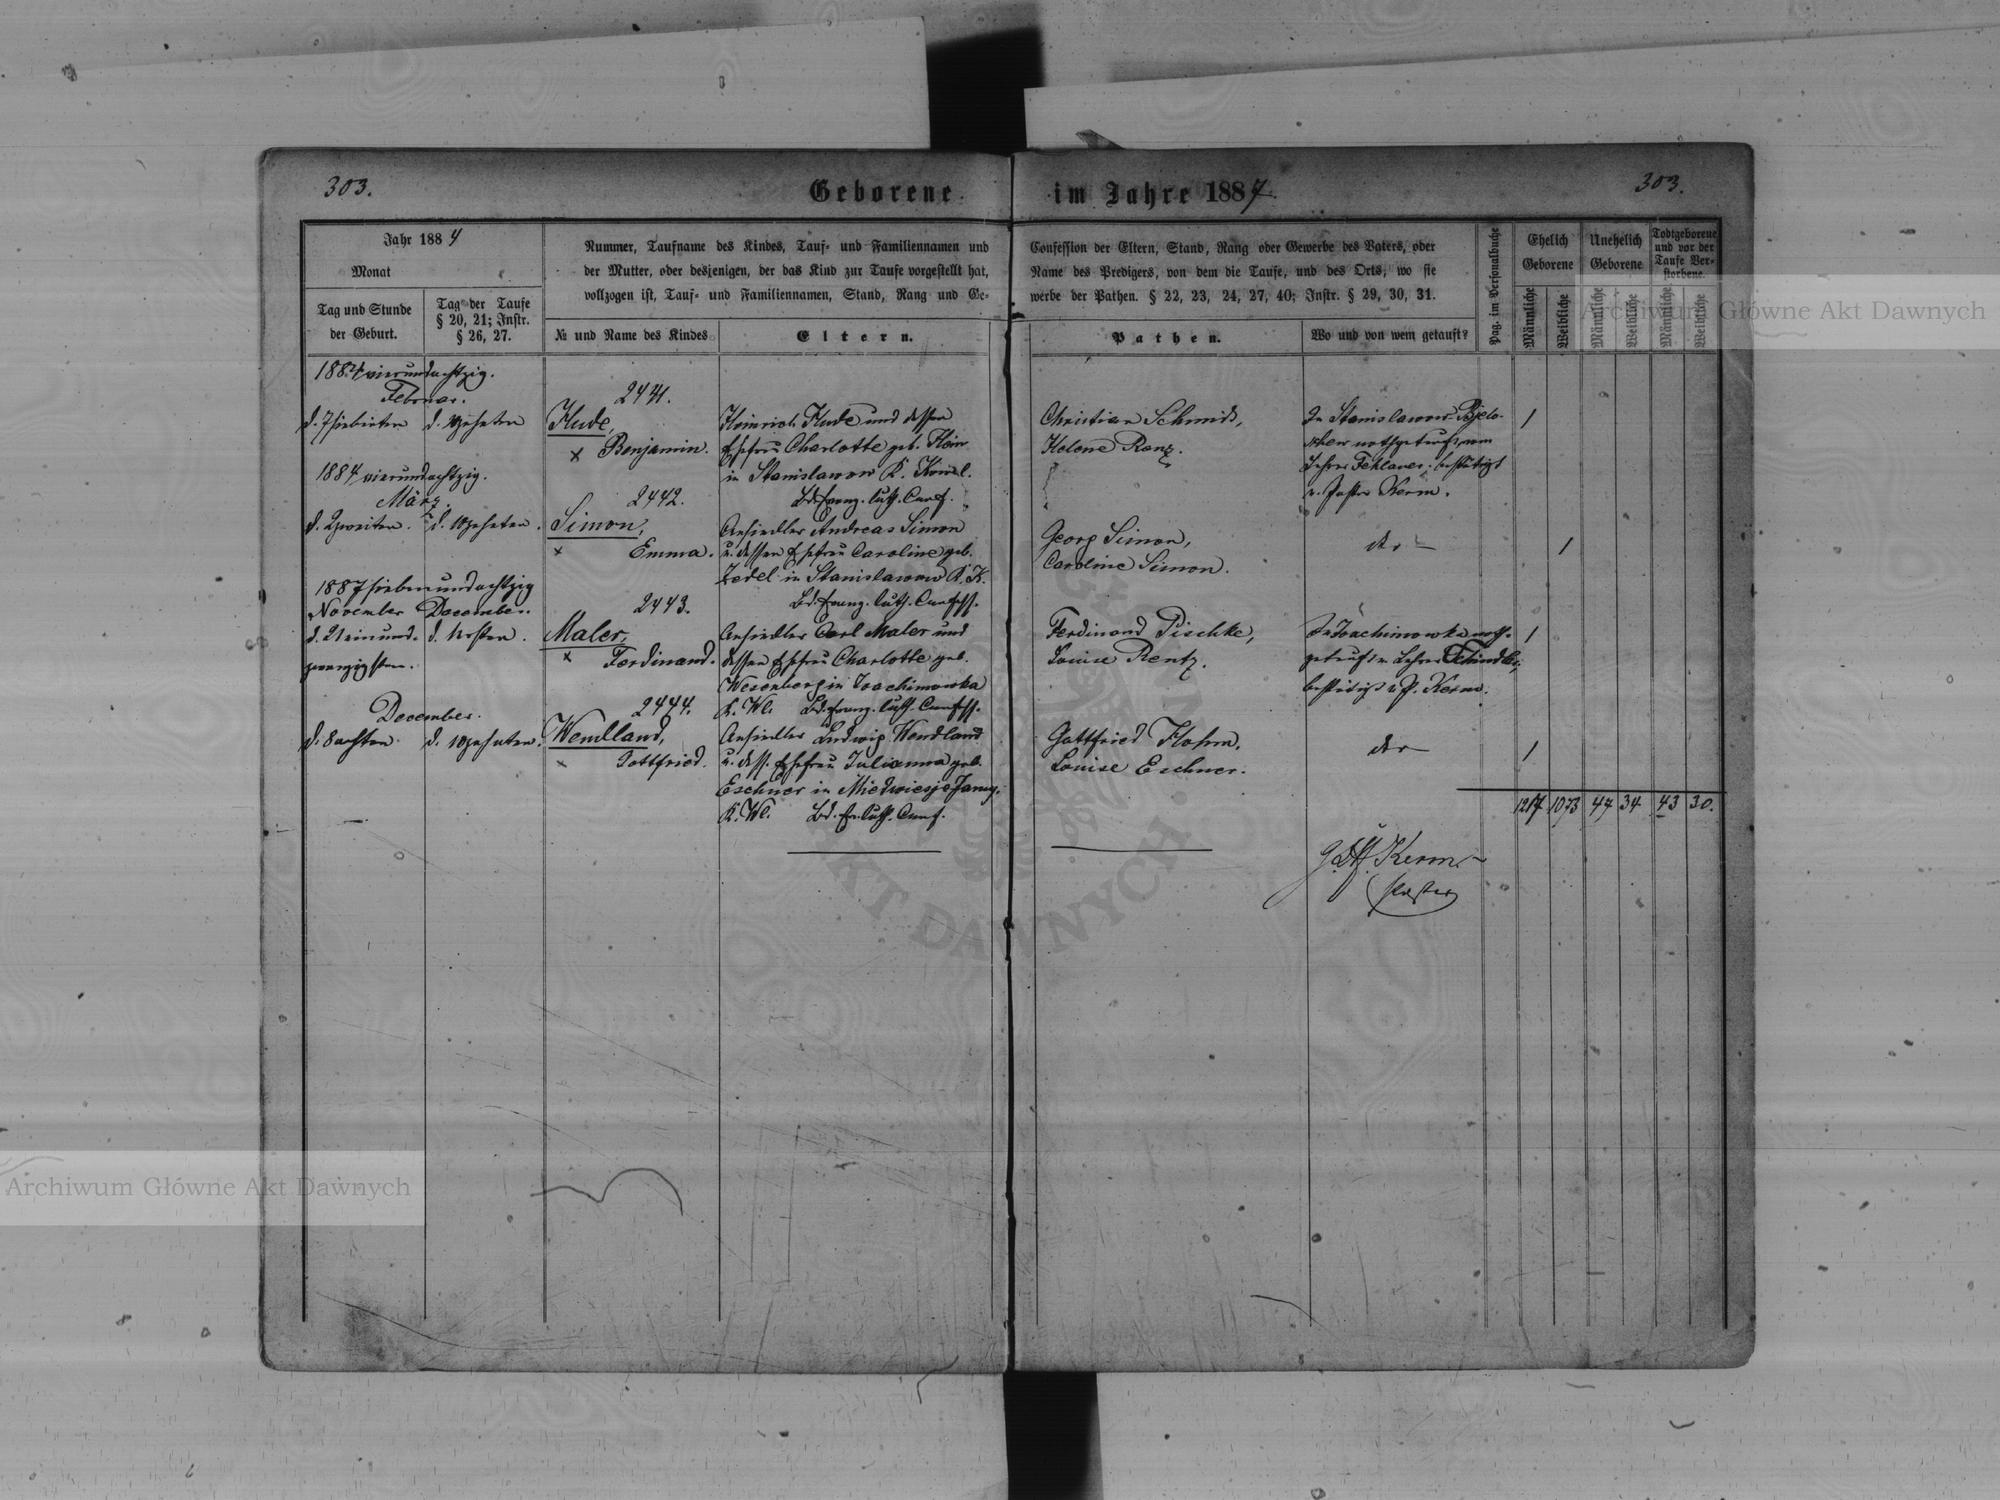 303.
Geborene
im Jahre 1887
303.
Jahr 1884
Monat
Tag und Stunde
der Geburt.
Tag der Taufe
§ 20, 21; Instr.
§ 26, 27.
Nummer, Taufname des Kindes, Tauf- und Familiennamen und
der Mutter, oder desjenigen, der das Kind zur Taufe vorgestellt hat,
vollzogen ist, Tauf- und Familiennamen, Stand, Rang und Ge-
№ und Name des Kindes
Eltern.
Confession der Eltern, Stand, Rang oder Gewerbe des Vaters, oder
Name des Predigers, von dem die Taufe, und des Orts, wo sie
werbe der Pathen. § 22, 23, 24, 27, 40; Instr. § 29, 30, 31.
Pathen.
Wo und von wem getauft?
Pag. im Personalbuche
Ehelich
Geborene
Unehelich
Geborene
Todtgeborene
und vor der
Taufe Ver-
storbene.
Männliche
Weibliche
Männliche
Weibliche
Männliche
Weibliche
1884 vierundachtzig.
Februar.
d. 7 siebenten
d. 10 zehnten
2441.
Hude,
Benjamin.
Heinrich Hude und dessen
Ehefrau Charlotte geb. Klein
in Stanislawow K. Kowel.
Bd. Evang. luth. Conf.
Christian Schmidt,
Helene Ranz.
In Stanislawow
nothgetauft vom
Lehrer Fehlauer, bestätigt
v. Pastor Kerm.
1
1884 vierundachtzig.
März.
d. 2 zweiten.
d. 10 zehnten.
2442.
Simon,
Emma.
Ansiedler Andreas Simon
u. dessen Ehefrau Caroline geb.
Zedel in Stanislawow K. K.
Bd. Evang. luth. Confess.
Georg Simon,
Caroline Simon.
dto
1
1887 siebenundachtzig
November December.
d. 21 einund-
zwanzigsten.
d. 1 ersten.
2443.
Maler,
Ferdinand.
Ansiedler Carl Maler und
dessen Ehefrau Charlotte geb.
Wesenberg in Joachimowka
K. Wl. Bd. Evang. luth. Confess.
Ferdinand Pischke,
Louise Rentz.
In Joachimowka noth-
getauft v. Lehrer Schindler,
bestätigt v. P. Kerm.
1
December.
d. 8 achten.
d. 10 zehnten.
2444.
Wendland,
Gottfried.
Ansiedler Ludwig Wendland
u. dess. Ehefrau Julianna geb.
Eschner in
K. Wl. Bd. Ev. luth. Conf.
Gottfried Hohm,
Louise Eschner.
dto
1
1217 1073 44 34 43 30.
Kerm
Pastor
Archiwum Główne Akt Dawnych
Archiwum Główne Akt Dawnych
AKT DAWNYCH